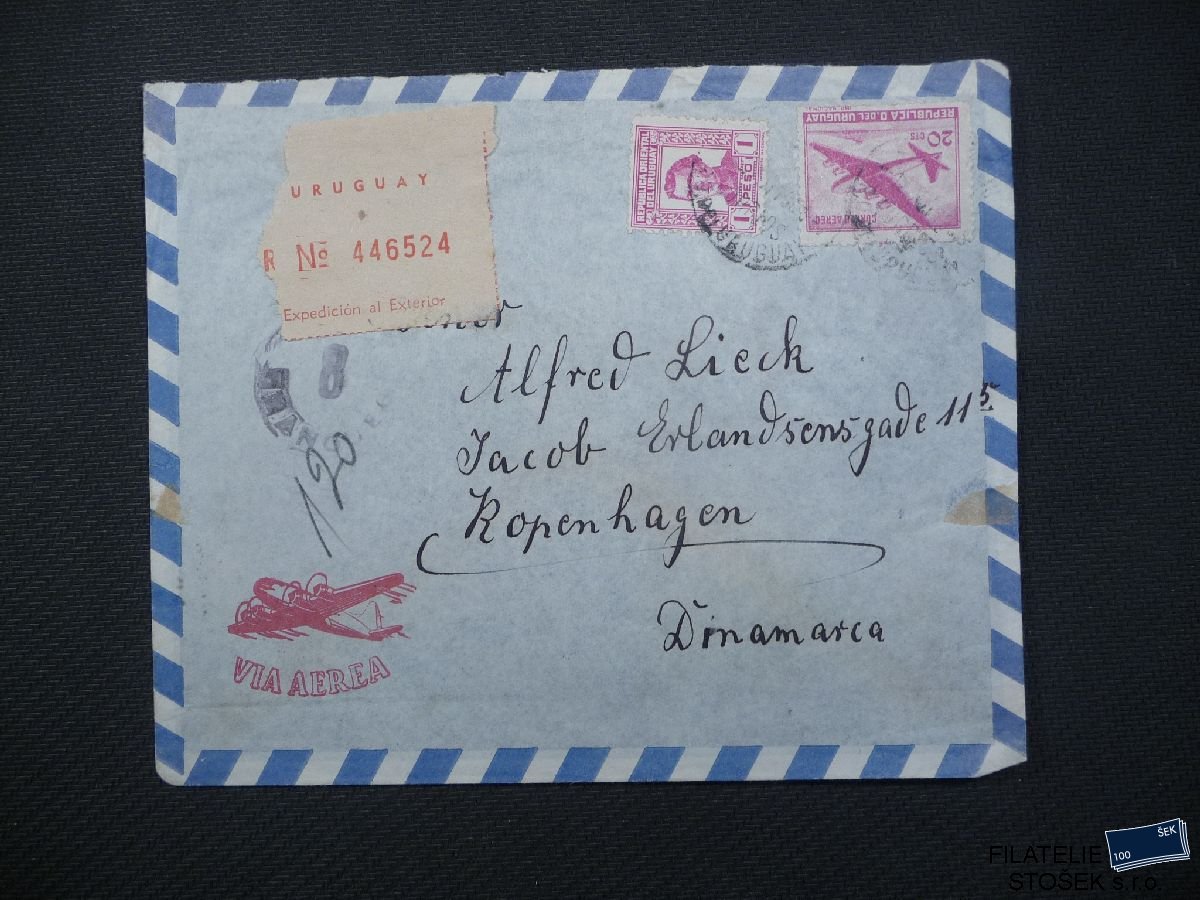 URUGUAY
R Nº 446524
Expedición al Exterior
REPUBLICA ORIENTAL
DEL URUGUAY
1 PESO 1
REPUBLICA O. DEL URUGUAY
IMP. NACIONAL
20 CTS
CORREO AEREO
URUGUAY
8
120
Alfred Lieck
Jacob Erlandsensgade 11 5
Kopenhagen
Dinamarca
VIA AEREA
100 ŠEK
FILATELIE
STOŠEK s.r.o.